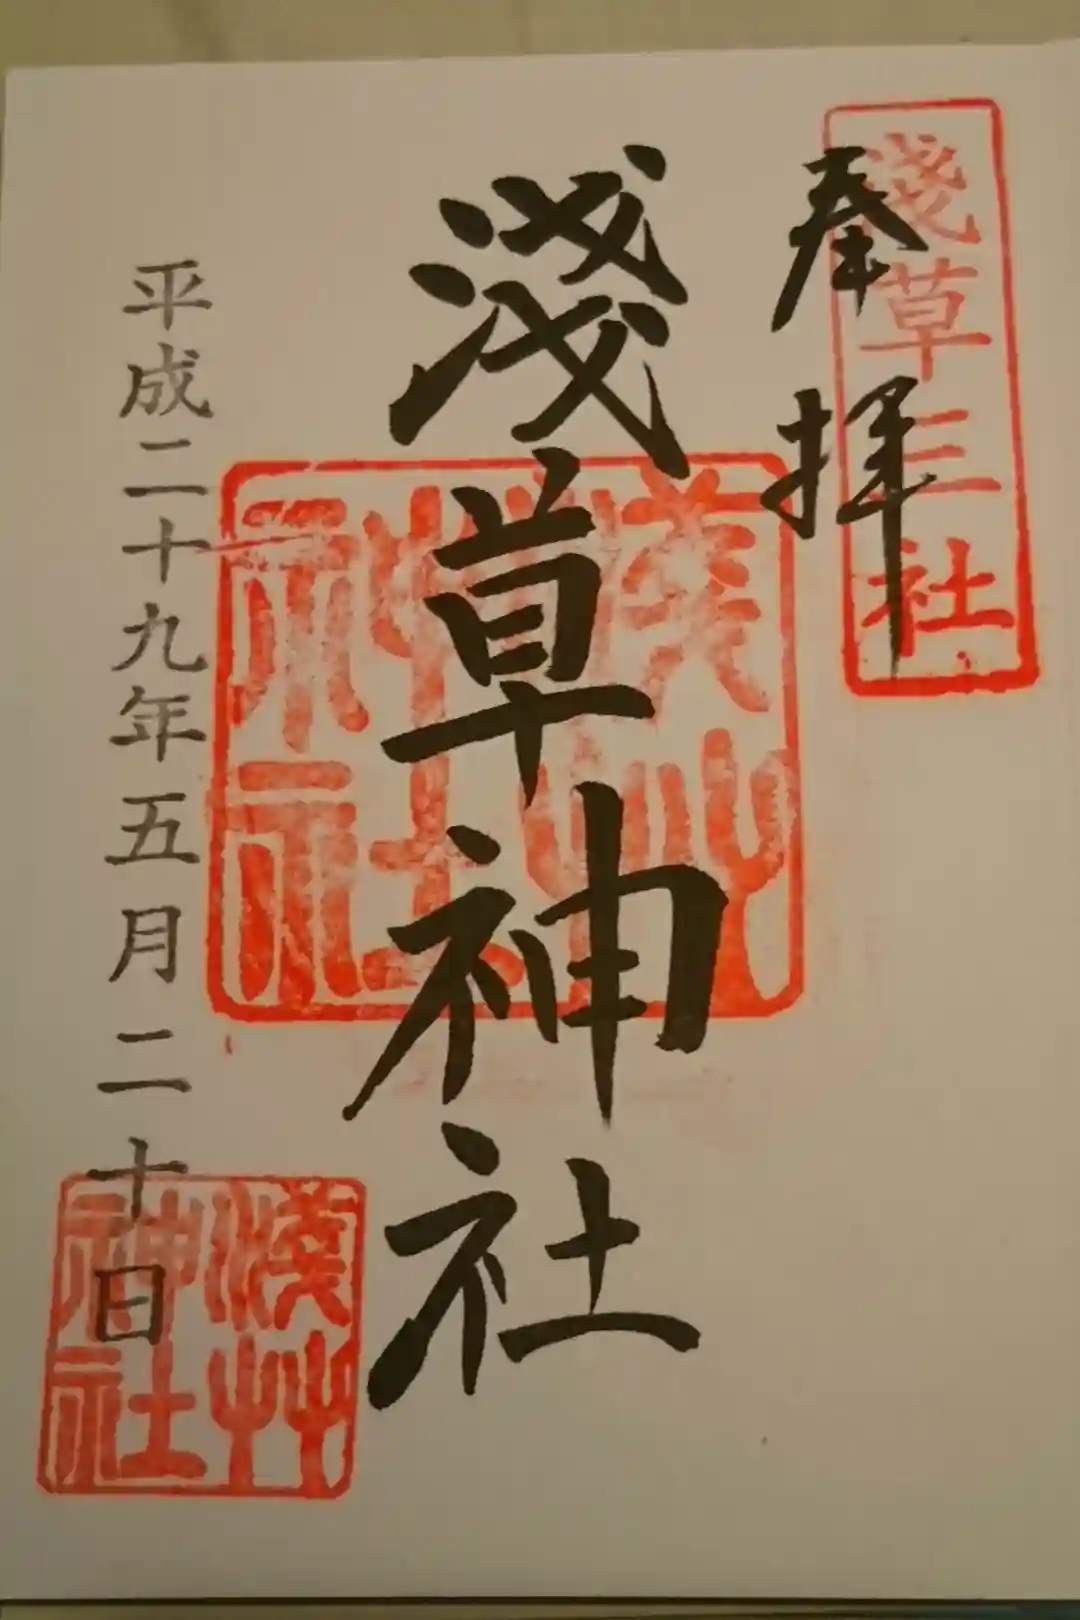 淺草三社
奉拝
淺草神社
淺艸神社
平成二十九年五月二十日
淺艸神社